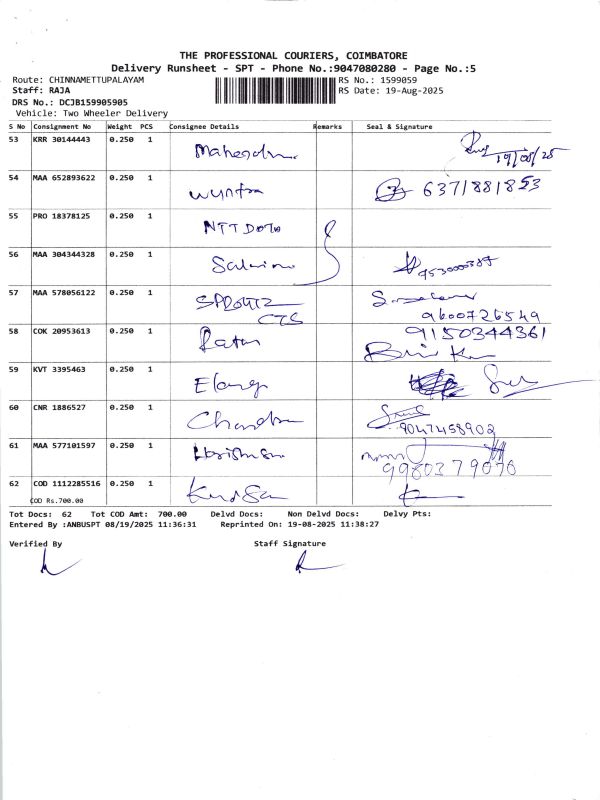 THE PROFESSIONAL COURIERS, COIMBATORE
Delivery Runsheet - SPT - Phone No.:9047080280 - Page No.:5
Route: CHINNAMETTUPALAYAM RS No.: 1599059
Staff: RAJA RS Date: 19-Aug-2025
DRS No.: DCJB159905905
Vehicle: Two Wheeler Delivery
S No Consignment No Weight PCS Consignee Details Remarks Seal & Signature
53 KRR 30144443 0.250 1 19/08/25
54 MAA 652893622 0.250 1 6371881853
55 PRO 18378125 0.250 1 NTT
56 MAA 304344328 0.250 1
57 MAA 578056122 0.250 1
CTS 9600726549
58 COK 20953613 0.250 1 9150344361
59 KVT 3395463 0.250 1
60 CNR 1886527 0.250 1 9047458902
61 MAA 577101597 0.250 1 9980379070
62 COD 1112285516 0.250 1
COD Rs.700.00
Tot Docs: 62 Tot COD Amt: 700.00 Delvd Docs: Non Delvd Docs: Delvy Pts:
Entered By :ANBUSPT 08/19/2025 11:36:31 Reprinted On: 19-08-2025 11:38:27
Verified By Staff Signature